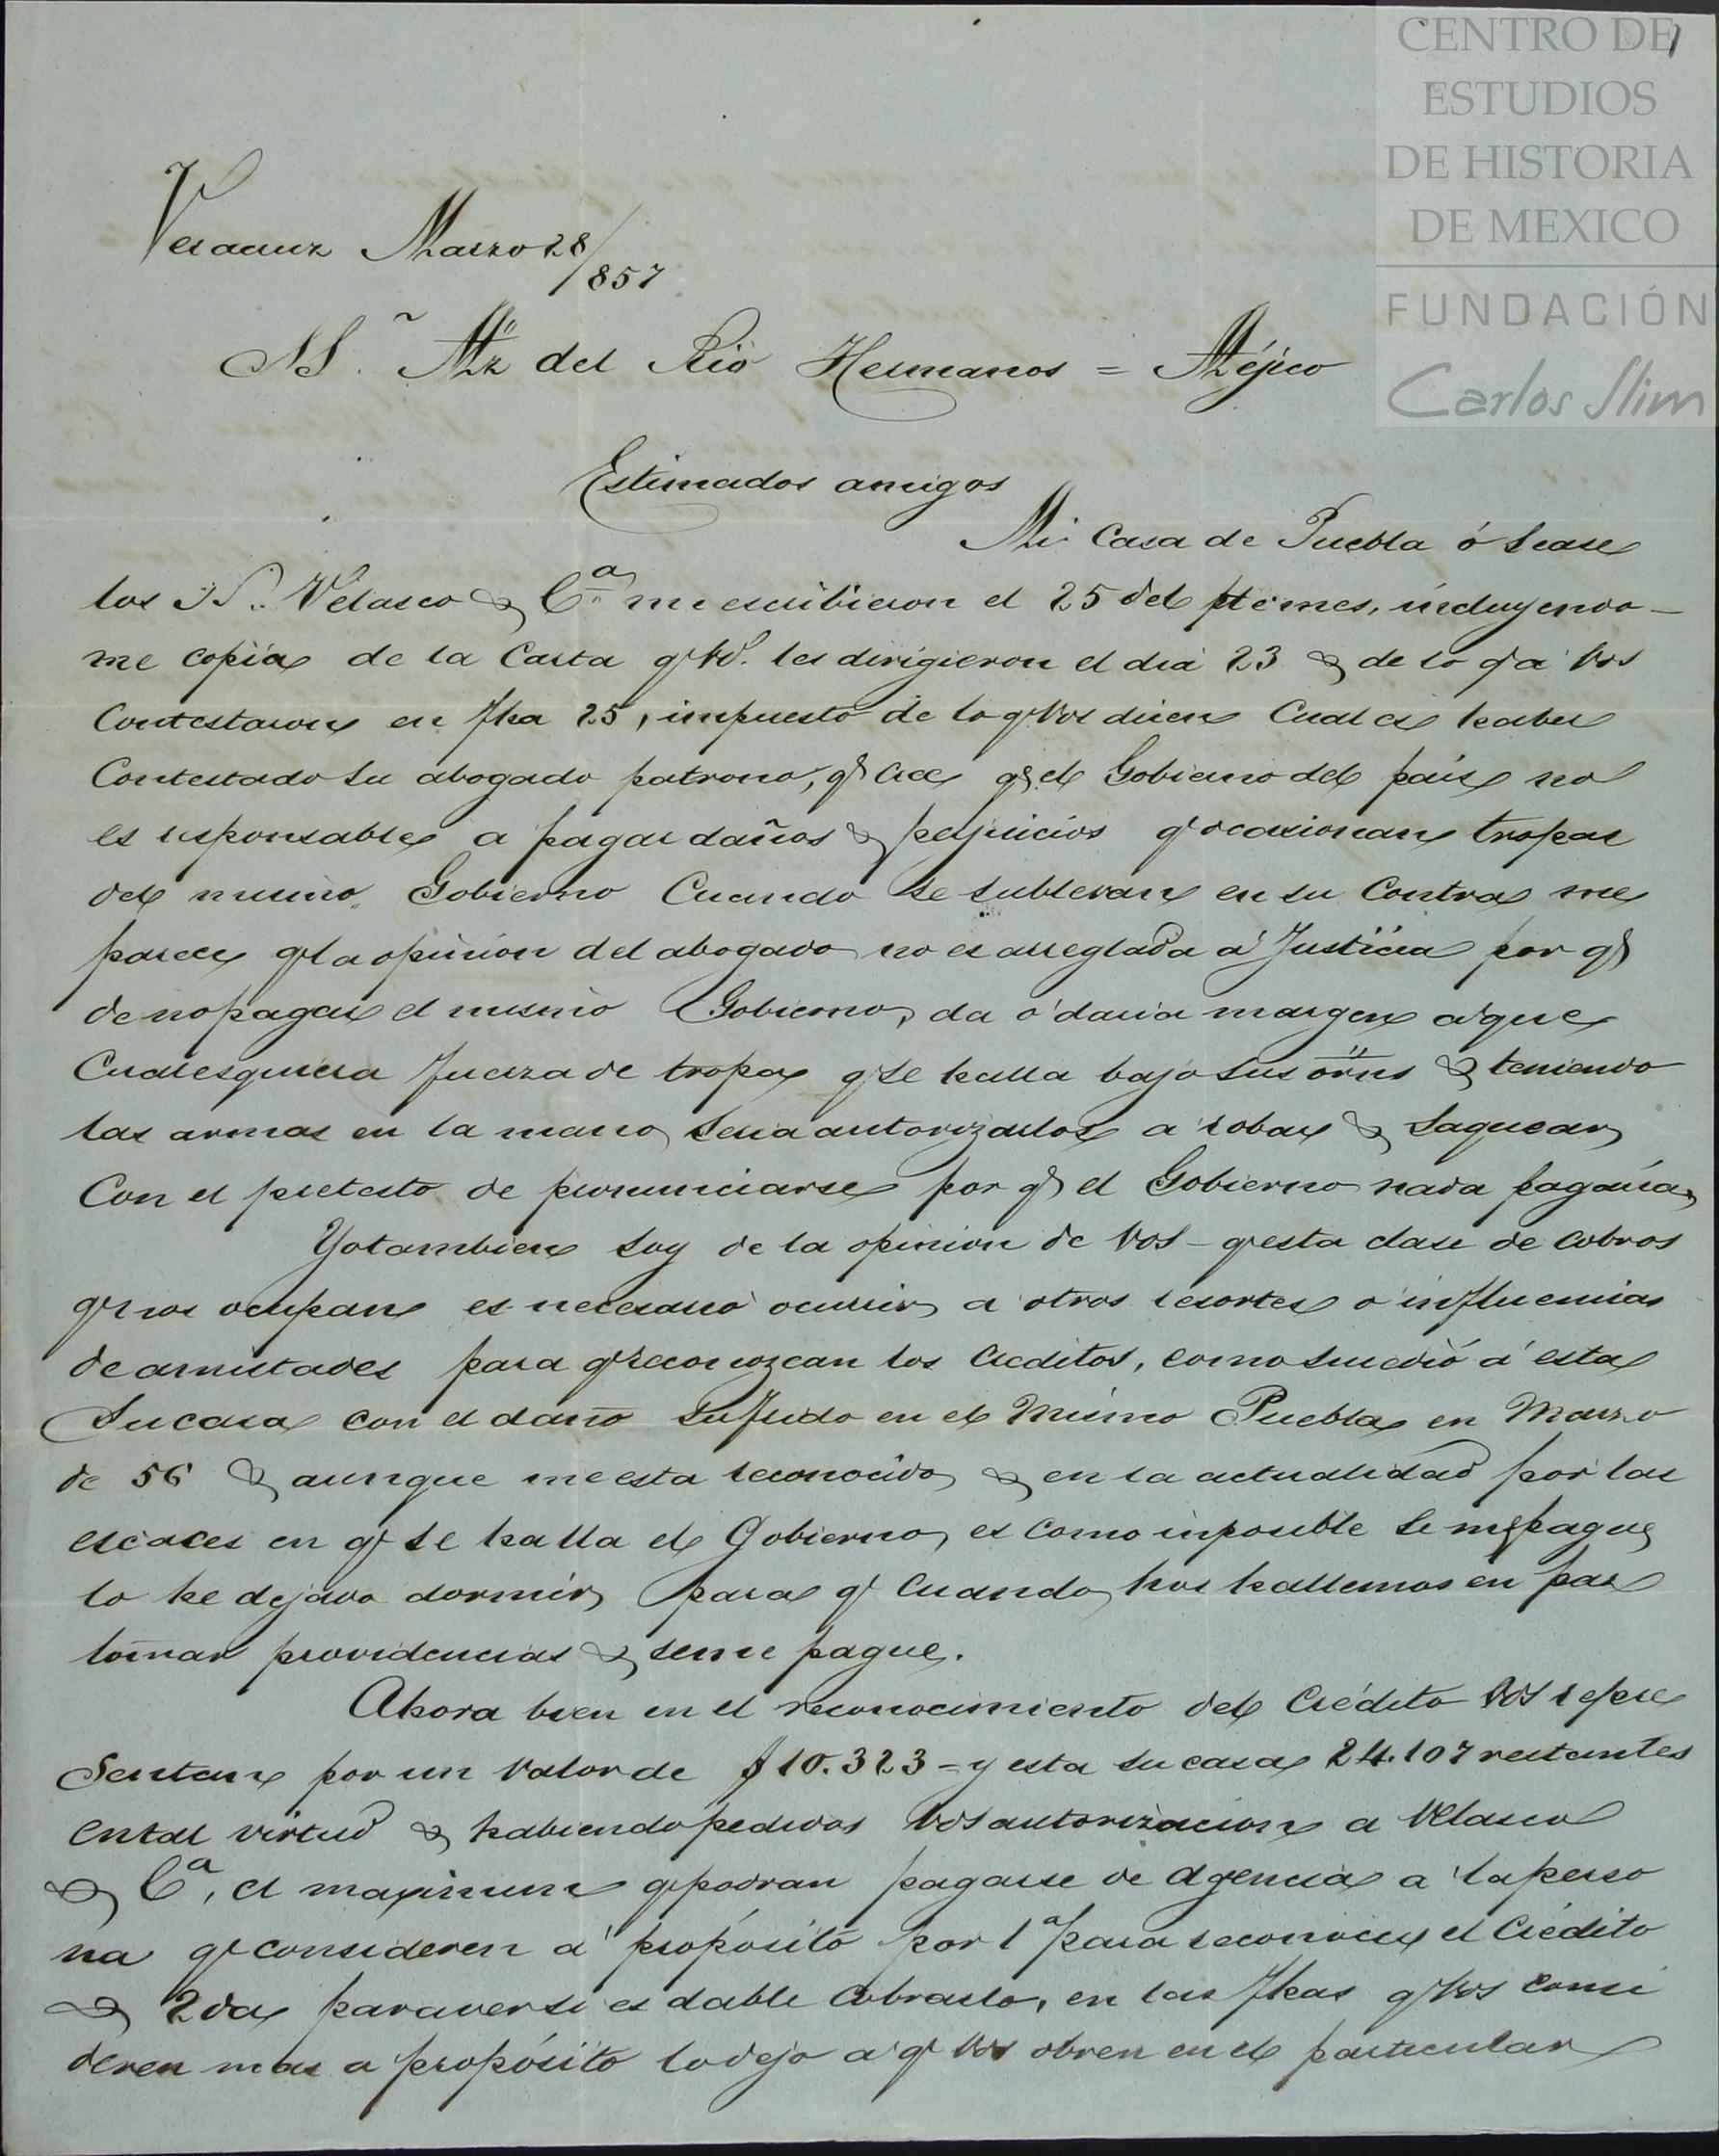 CENTRO DE
ESTUDIOS
DE HISTORIA
DE MEXICO
FUNDACIÓN
Carlos Slim
1
Veracruz Marzo 28/857
SS. Mz del Rio Hermanos = Méjico
Estimados amigos
Mi Casa de Puebla ó sease
los SS. Velasco & Ca me escribieron el 25 del pte mes, incluyendo-
me copia de la Carta q Vds. les dirigieron el dia 23 & de lo q a Vds
Contestaron en fha 25, impuesto de lo q Vds dicen Cual es haber
Contestado su abogado patrono, q cree q el Gobierno del pais no
es responsable a pagar daños & perjuicios q ocasionan tropas
del mismo Gobierno Cuando se sublevan en su Contra me
parece q la opinion del abogado no es arreglada á Justicia por q
de no pagar el mismo Gobierno, da ó daria margen a que
Cualesquiera fuerza de tropa q se halla bajo sus orns & teniendo
las armas en la mano, seria autorizarlos a robar & saquear
Con el pretesto de pronunciarse por q el Gobierno nada pagaria,
Yo tambien soy de la opinion de Vds - q esta clase de cobros
q nos ocupan es necesario ocurrir a otros resortes o influencias
de amistades para q reconozcan los Creditos, como sucedió á esta
Su casa con el daño sufrido en el Mismo Puebla en Marzo
de 56 & aunque me esta reconocido & en la actualidad por las
escaces en q se halla el Gobierno, es como inposible se me pague
lo he dejado dormir para q Cuando nos hallemos en paz
tomar providencias & se me pague.
Ahora bien en el reconocimiento del Crédito Vds repre
Sentan por un Valor de $10.323 = y esta su casa 24.107 restantes
en tal virtud & habiendo pedidos Vds autorizacion a Velasco
& Ca, el maximum q podran pagarse de Agencia a la perso
na q consideren á propósito por 1a para reconocer el Crédito
& 2da para ver si es dable Cobrarlo, en las fhas q Vds consi
deren mas a propósito lo dejo a q Vds obren en el particular